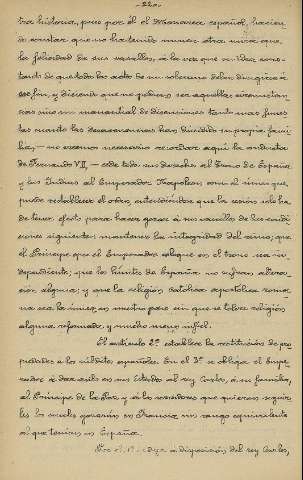 -220-
tra historia, pues por él el Monarca español, hacien
do constar que no ha tenido nunca otra mira que
la felicidad de sus vasallos, a la vez que su idea cons-
tante de que todos los actos de un soberano deben dirigirse á
ese fin, y diciendo que no pudiera ser aquellas circunstan-
cias sino un manantial de disensiones tanto mas funes
tas cuanto las desavenencias han dividido su propia fami-
lia, - no creemos necesario recordar aquí la conducta
de Fernando VII, - cede todos sus derechos al Trono de España
y las Indias al Emperador Napoleon como el único que,
puede restablecer el orden, entendiéndose que la cesión solo ha
de tener efecto para hacer gozar á sus vasallos de las condi
ciones siguientes: mantener la integridad del reino; que
el Príncipe que el Emperador coloque en el trono sea in-
dependiente; que los límites de España no sufran altera-
ción alguna; y que la religión católica apostólica roma-
na sea la única, en nuestro país sin que se tolere religión
alguna reformada, y mucho menos infiel.
El artículo 2º establece la restitución de pro
piedades á los súbditos españoles. En el 3º se obliga el Empe-
rador á dar asilo en sus Estados al rey Carlos, á su familia,
al Príncipe de la Paz y á los servidores que quieran seguir-
les los cuales gozarán en Francia un rango equivalente
al que tenían en España.
Por el 4º deja á disposición del rey Carlos,